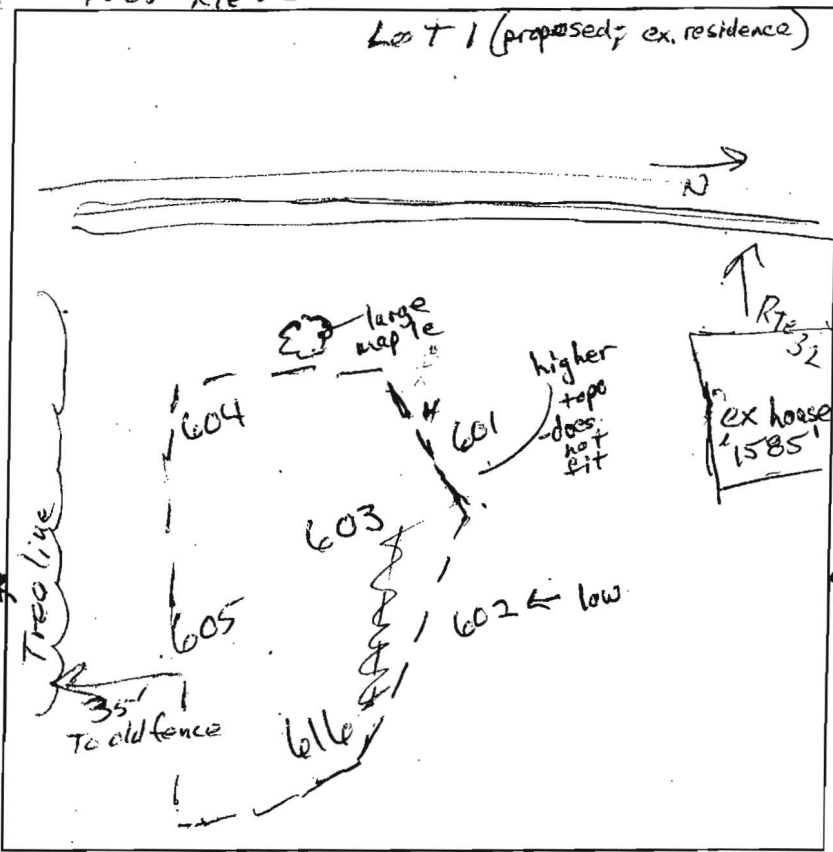 Lot 1 (proposed; ex. residence)
N
large
maple
Rte
32
higher
topo
-does
not
fit
ex house
"1585"
604
601
603
602 ← low
Treeline
605
35'
To old fence
616